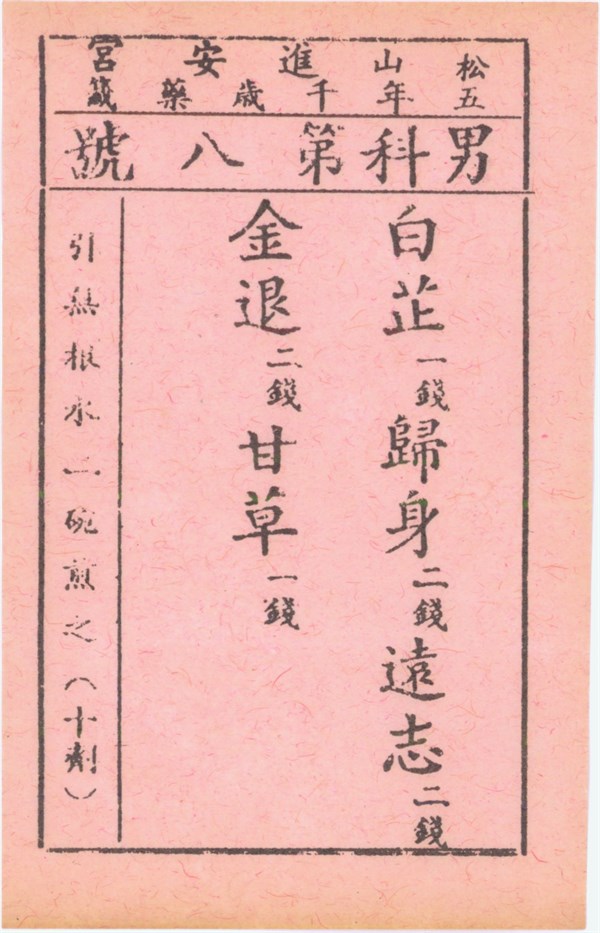 松山進安宮
五年千歲藥籤
男科第八號
白芷一錢歸身二錢遠志二錢
金退二錢甘草一錢
引無根水二碗煎之（十劑）